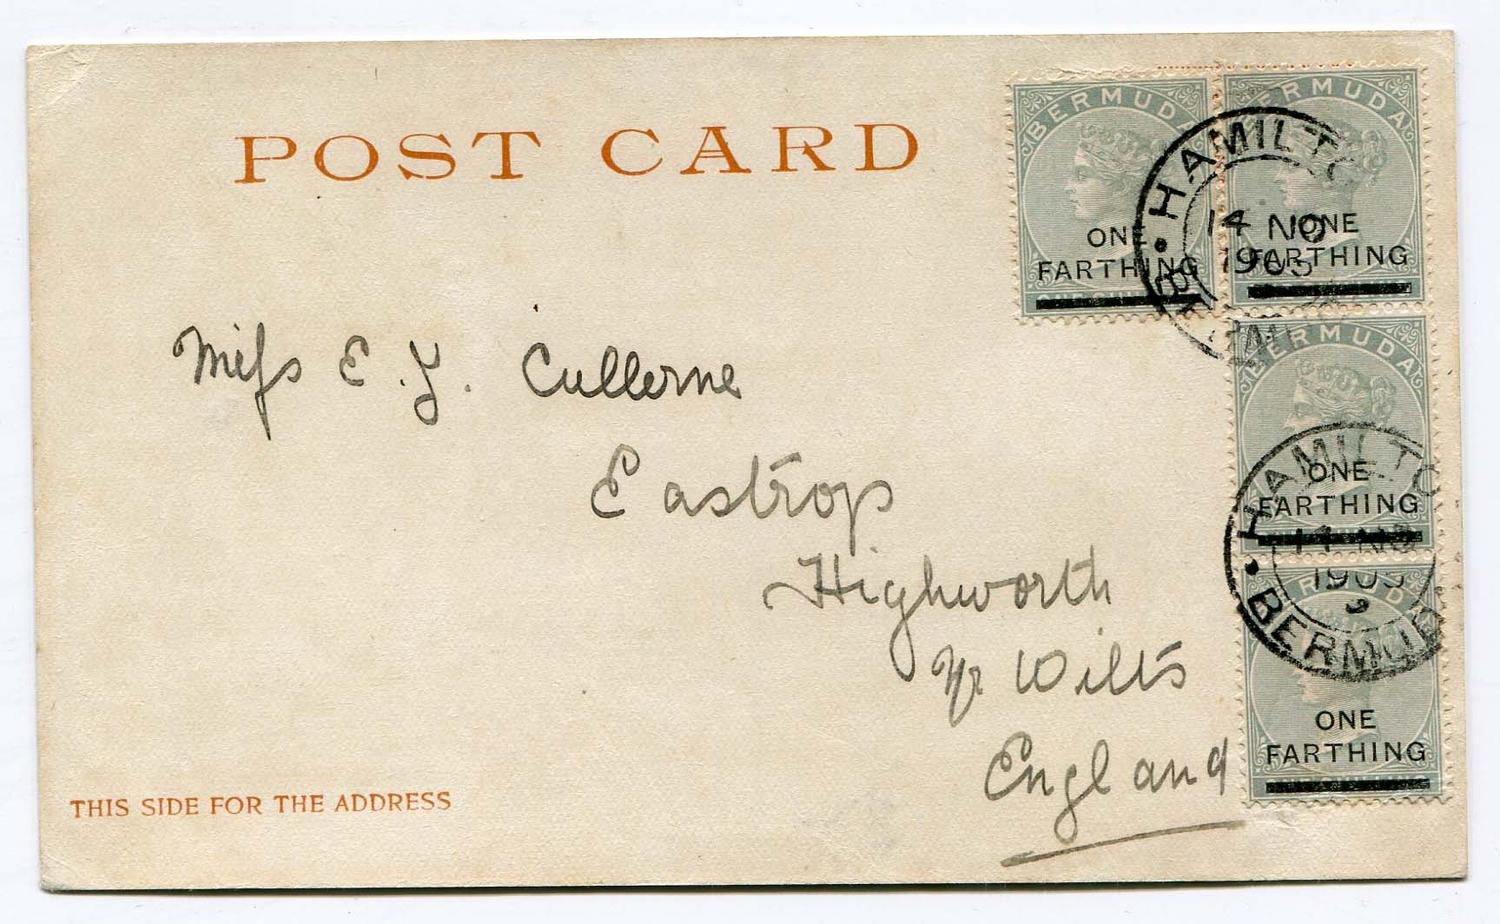 POST CARD
BERMUDA
ONE
FARTHING
BERMUDA
ONE
FARTHING
HAMILTO
14 NO
1905
BERMUDA
ONE
FARTHING
HAMILTO
14 NO
1905
BERMUD
ONE
FARTHING
Miſs E. J. Cullerne
Eastrop
Highworth
Nr Wilts
England
THIS SIDE FOR THE ADDRESS